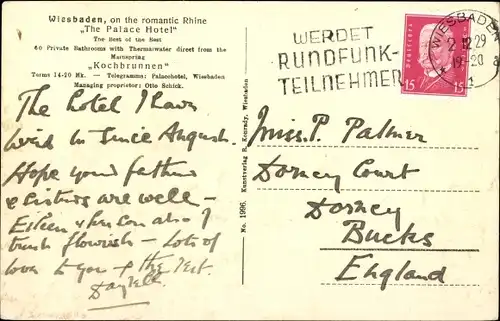 Wiesbaden, on the romantic Rhine
„The Palace Hotel"
The Best of the Best
60 Private Bathrooms with Thermanwater direct from the
Mainspring
„Kochbrunnen"
Terms 14-20 Rk. — Telegramms: Palacehotel, Wiesbaden
Managing proprietor: Otto Schick.
The hotel I have
lived in since August.
Hope your father
& sisters are well —
Eileen & her son also I
trust flourish — Lots of
love to you & the rest.
No. 1996. Kunstverlag R. Konrady, Wiesbaden
WERDET
RUNDFUNK-
TEILNEHMER
WIESBADEN
2.12.29
19-20
1
15 15
Miss. P. Palmer
Dorney Court
Dorney
Bucks
England